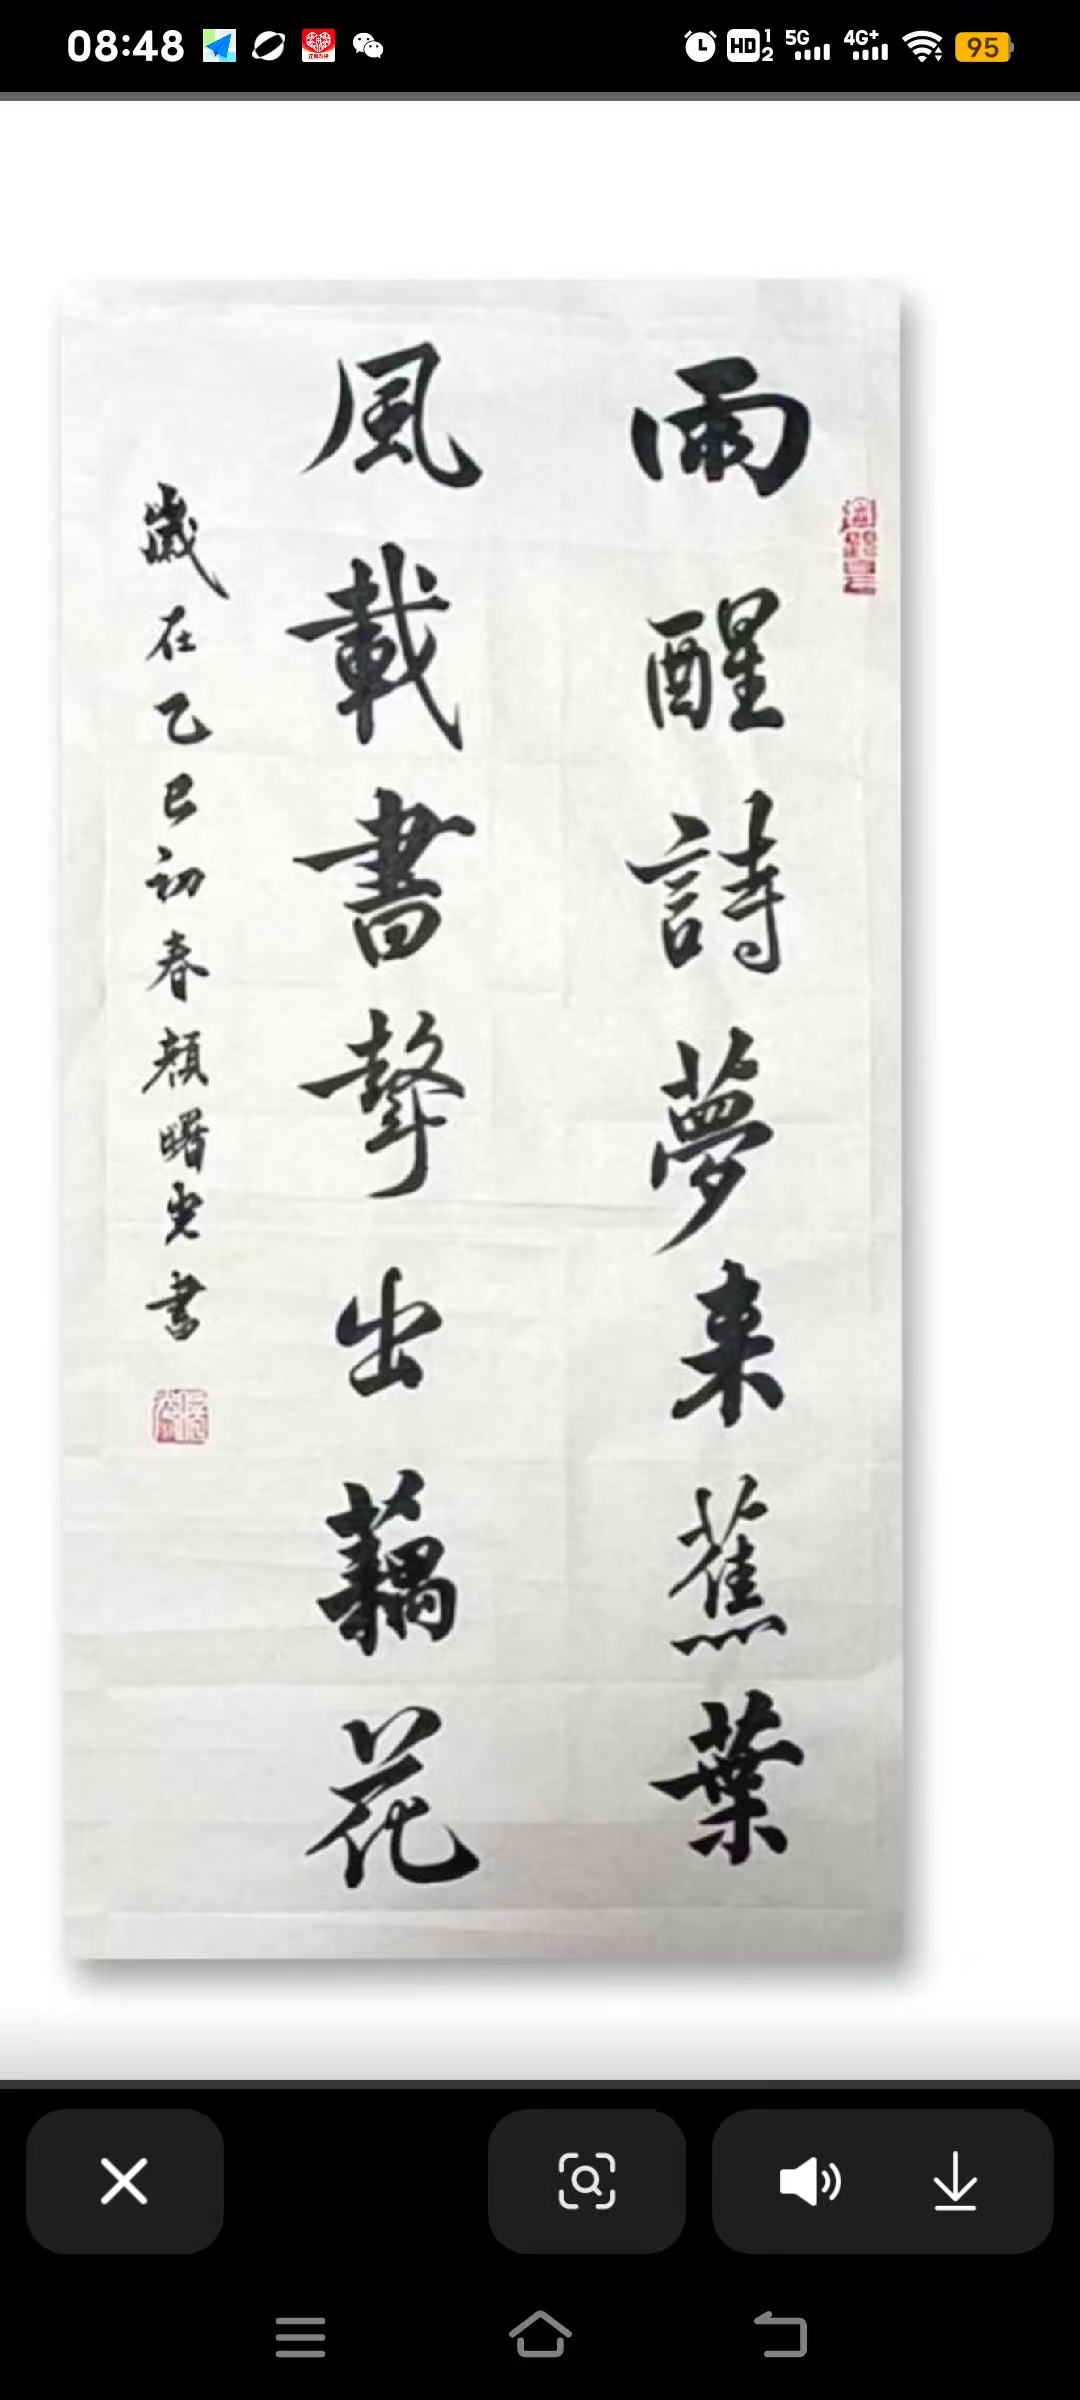 08:48
HD 1 2 5G 4G+ 95
雨醒詩夢来蕉葉
風載書聲出藕花
歲在乙巳初春顏曙光書